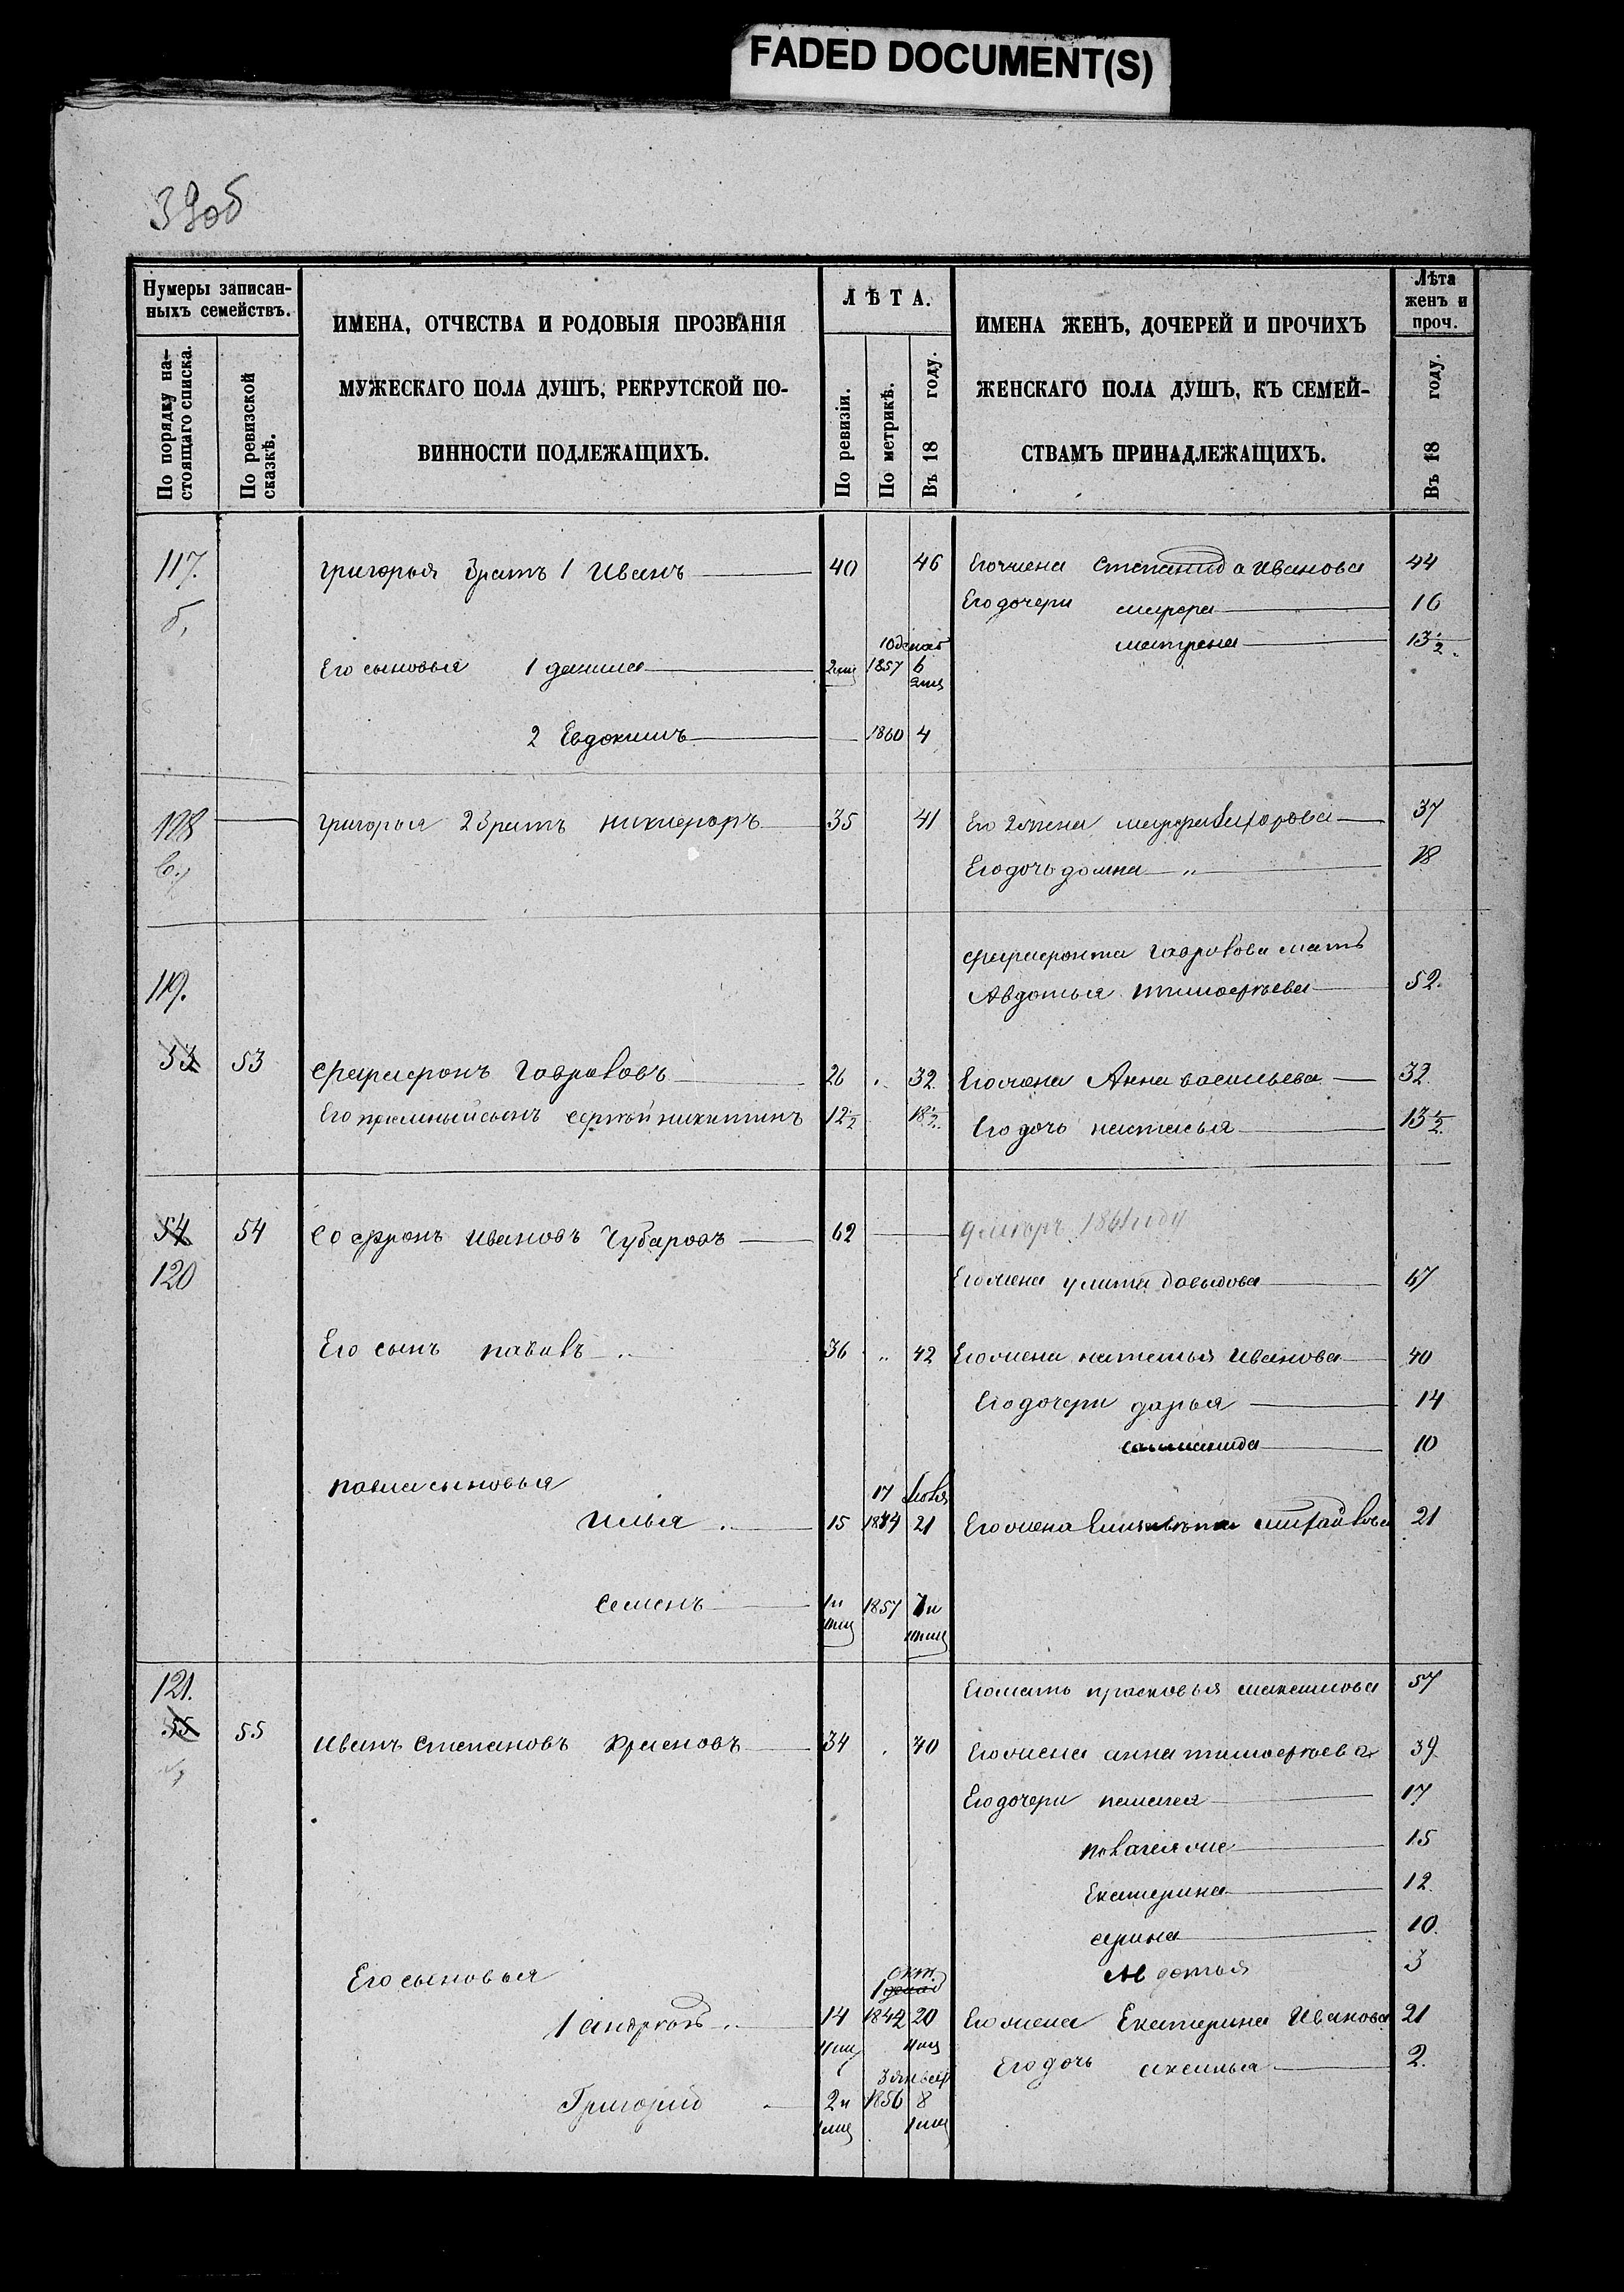 FADED DOCUMENT(S)
39об
Нумеры записан-
ныхъ семействъ.
По порядку на-
стоящаго списка.
По ревизской
сказкѣ.
ИМЕНА, ОТЧЕСТВА И РОДОВЫЯ ПРОЗВАНІЯ
МУЖЕСКАГО ПОЛА ДУШЪ, РЕКРУТСКОЙ ПО-
ВИННОСТИ ПОДЛЕЖАЩИХЪ.
ЛѢТА.
По ревизіи.
По метрикѣ.
Въ 18 году.
ИМЕНА ЖЕНЪ, ДОЧЕРЕЙ И ПРОЧИХЪ
ЖЕНСКАГО ПОЛА ДУШЪ, КЪ СЕМЕЙ-
СТВАМЪ ПРИНАДЛЕЖАЩИХЪ.
Лѣта
женъ и
проч.
Въ 18 году.
117. Григорья братъ 1 Иванъ 40 46 Его жена Степанида Иванова 44
б, Его дочери марфа 16
матрена 13 1/2
Его сыновья 1 данила 1857 6
2 Евдокимъ 1860 4
118 Григорья 2 братъ никифоръ 35 41 Его 2 жена марфа 37
в, Его дочь домна 18
ферафонта мать
119. Авдотья тимофѣева 52.
53 53 ферафонъ 26 32 Его жена Анна васильева 32
Его приемный сынъ сергѣй никитинъ 12 1/2 18 1/2 Его дочь настасья 13 1/2
54 54 Софронъ Ивановъ Чубаровъ 62 умеръ 1861 году
120 Его жена улита давыдова 67
Его сынъ павелъ 36 42 Его жена наталья Иванова 40
Его дочери дарья 14
10
павла сыновья 17
Илья 15 1844 21 Его жена 21
Семенъ 1857
121. Его мать прасковья максимова 57
55 55 Иванъ Степановъ Красновъ 34 40 Его жена анна тимофѣева 39
Его дочери 17
пелагея 15
Екатерина 12
арина 10
Его сыновья окт. Авдотья 3
1 андрей 14 1842 20 Его жена Екатерина Иванова 21
Его дочь аксинья 2
3 январ
Григорий 2 и 1856 8